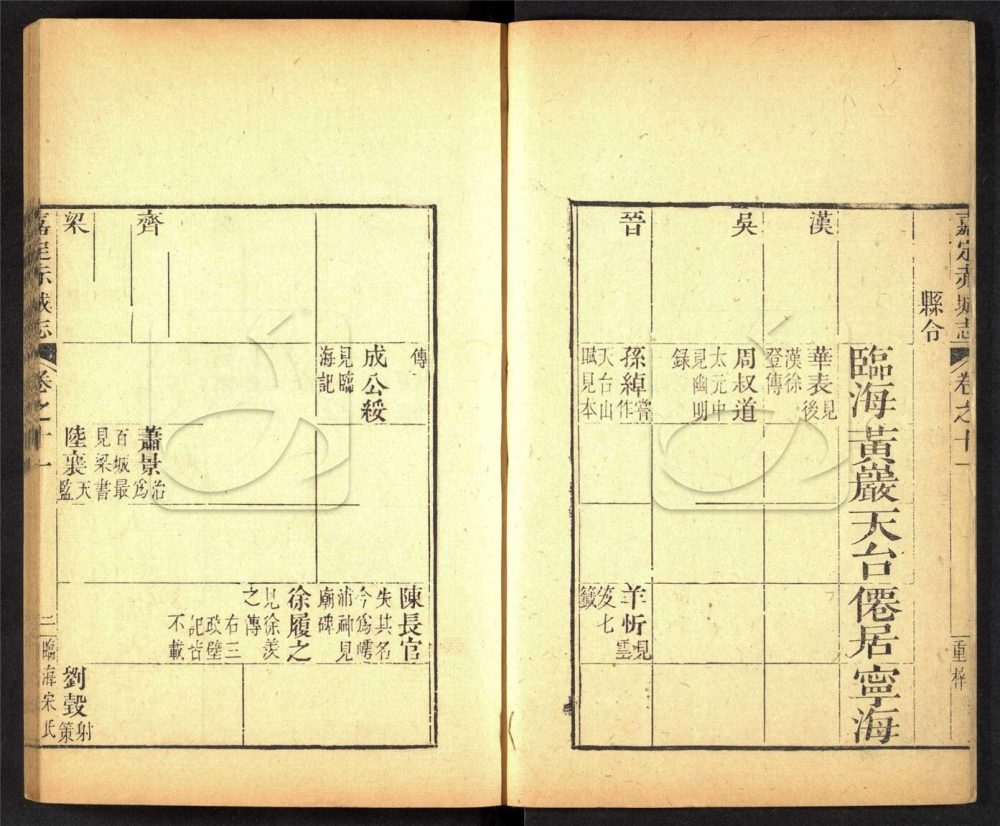 嘉定赤城志 卷之十一 重梓
縣令
臨海 黃巖 天台 僊居 寧海
漢
華表見後
漢徐
登傳
吳
周叔道
太元中
見幽明
録
晉
孫綽嘗作
天台山
賦見本
羊忻見雲
笈七
籤
傳
成公綏
見臨
海記
陳長官
失其名
今為嶀
浦神見
廟碑
徐履之
見徐羨
之傳
右三
政壁
記皆
不載
齊
蕭景治為
百城最
見梁書
梁
陸襄天監
劉瑴射策
嘉定赤城志 卷之十一 二 臨海宋氏